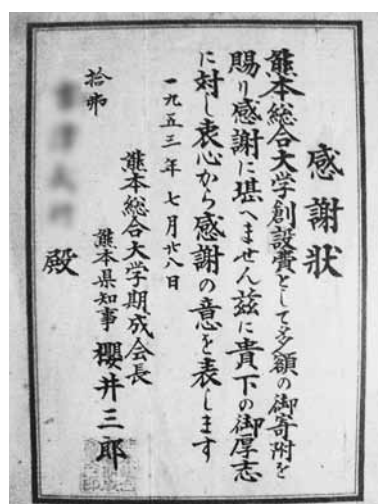 感謝状
熊本総合大学創設費として多額の御寄附を
賜り感謝に堪へません茲に貴下の御厚志
に対し衷心から感謝の意を表します
一九五三年七月廿八日
熊本総合大学期成会長
熊本県知事 櫻井三郎
殿